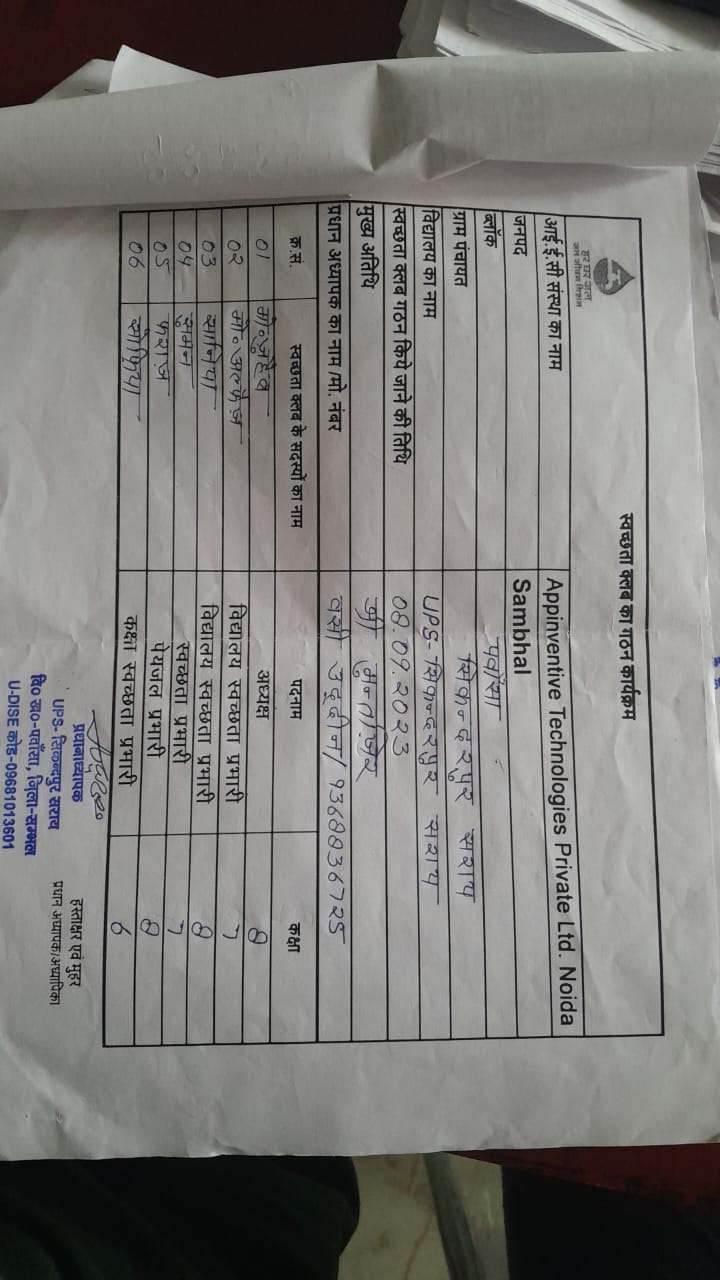 हर घर जल
जल जीवन मिशन
स्वच्छता क्लब का गठन कार्यक्रम
आई.ई.सी संस्था का नाम Appinventive Technologies Private Ltd. Noida
जनपद Sambhal
ब्लॉक पवाँसा
ग्राम पंचायत सिकन्दरपुर सराय
विद्यालय का नाम UPS- सिकन्दरपुर सराय
स्वच्छता क्लब गठन किये जाने की तिथि 08.09.2023
मुख्य अतिथि श्री मुन्तज़िर
प्रधान अध्यापक का नाम /मो. नंबर वसी उद्दीन/ 9368036725
क्र.सं. स्वच्छता क्लब के सदस्यों का नाम पदनाम कक्षा
01 मो० जुहैब अध्यक्ष 8
02 मो० अल्फेज़ विद्यालय स्वच्छता प्रभारी 7
03 सानिया विद्यालय स्वच्छता प्रभारी 8
04 सुमन स्वच्छता प्रभारी 7
05 फराज़ पेयजल प्रभारी 8
06 सोफिया कक्षा स्वच्छता प्रभारी 6
प्रधानाध्यापक
UPS- सिकन्दरपुर सराय
वि0 ख0-पवाँसा, जिला-सम्भल
U-DISE कोड-09681013601
हस्ताक्षर एवं मुहर
प्रधान अध्यापक/अध्यापिका